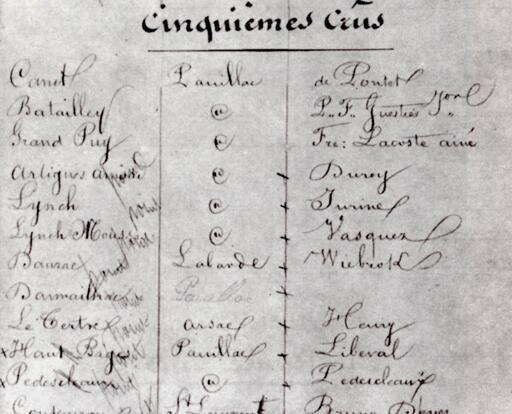 Cinquièmes Crûs
Canet Pauillac de Pontet
Batailley @ P. F. Guestier
Grand Puy @ Fre: Lacoste ainé
Artigues @ Duroy
Lynch @ Jurine
Lynch Moussas @ Vasquez
Bauzac Labarde Wiebrok
Darmailhac Pauillac
Le Tertre arsac Henry
x Haut Bages Pauillac Liberal
x Pedesclaux @ Pedesclaux
Coutenceau St Laurent Bruno Devez